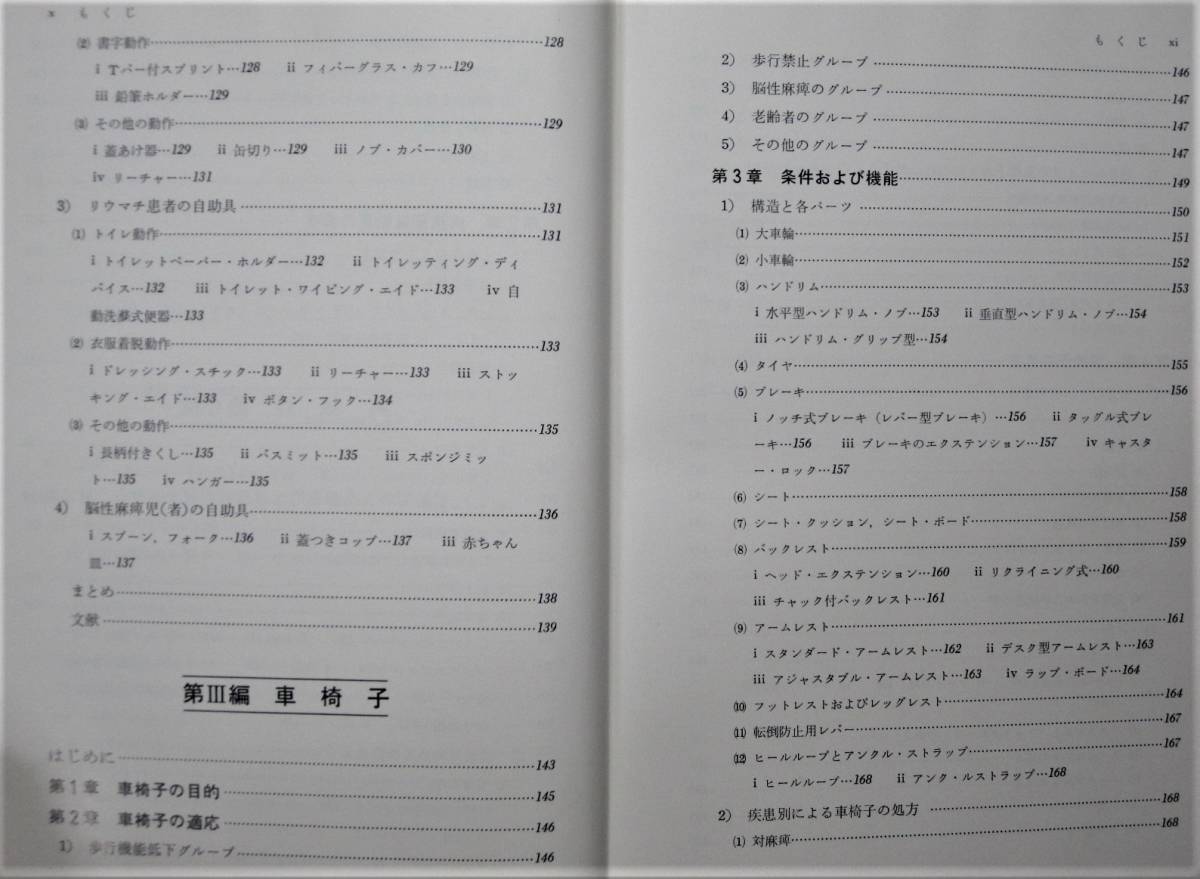 x もくじ
⑵ 書字動作…128
i Tバー付スプリント…128 ii フィバーグラス・カフ…129
iii 鉛筆ホルダー…129
⑶ その他の動作…129
i 蓋あけ器…129 ii 缶切り…129 iii ノブ・カバー…130
iv リーチャー…131
3) リウマチ患者の自助具…131
⑴ トイレ動作…131
i トイレットペーパー・ホルダー…132 ii トイレッティング・ディ
バイス…132 iii トイレット・ワイピング・エイド…133 iv 自
動洗滌式便器…133
⑵ 衣服着脱動作…133
i ドレッシング・スチック…133 ii リーチャー…133 iii ストッ
キング・エイド…133 iv ボタン・フック…134
⑶ その他の動作…135
i 長柄付きくし…135 ii バスミット…135 iii スポンジミッ
ト…135 iv ハンガー…135
4) 脳性麻痺児(者)の自助具…136
i スプーン,フォーク…136 ii 蓋つきコップ…137 iii 赤ちゃん
皿…137
まとめ…138
文献…139
第III編 車椅子
はじめに…143
第1章 車椅子の目的…145
第2章 車椅子の適応…146
1) 歩行機能低下グループ…146
もくじ xi
2) 歩行禁止グループ…146
3) 脳性麻痺のグループ…147
4) 老齢者のグループ…147
5) その他のグループ…147
第3章 条件および機能…149
1) 構造と各パーツ…150
⑴ 大車輪…151
⑵ 小車輪…152
⑶ ハンドリム…153
i 水平型ハンドリム・ノブ…153 ii 垂直型ハンドリム・ノブ…154
iii ハンドリム・グリップ型…154
⑷ タイヤ…155
⑸ ブレーキ…156
i ノッチ式ブレーキ(レバー型ブレーキ)…156 ii タッグル式ブレ
ーキ…156 iii ブレーキのエクステンション…157 iv キャスタ
ー・ロック…157
⑹ シート…158
⑺ シート・クッション,シート・ボード…158
⑻ バックレスト…159
i ヘッド・エクステンション…160 ii リクライニング式…160
iii チャック付バックレスト…161
⑼ アームレスト…161
i スタンダード・アームレスト…162 ii デスク型アームレスト…163
iii アジャスタブル・アームレスト…163 iv ラップ・ボード…164
⑽ フットレストおよびレッグレスト…164
⑾ 転倒防止用レバー…167
⑿ ヒールループとアンクル・ストラップ…167
i ヒールループ…168 ii アンク・ルストラップ…168
2) 疾患別による車椅子の処方…168
⑴ 対麻痺…168